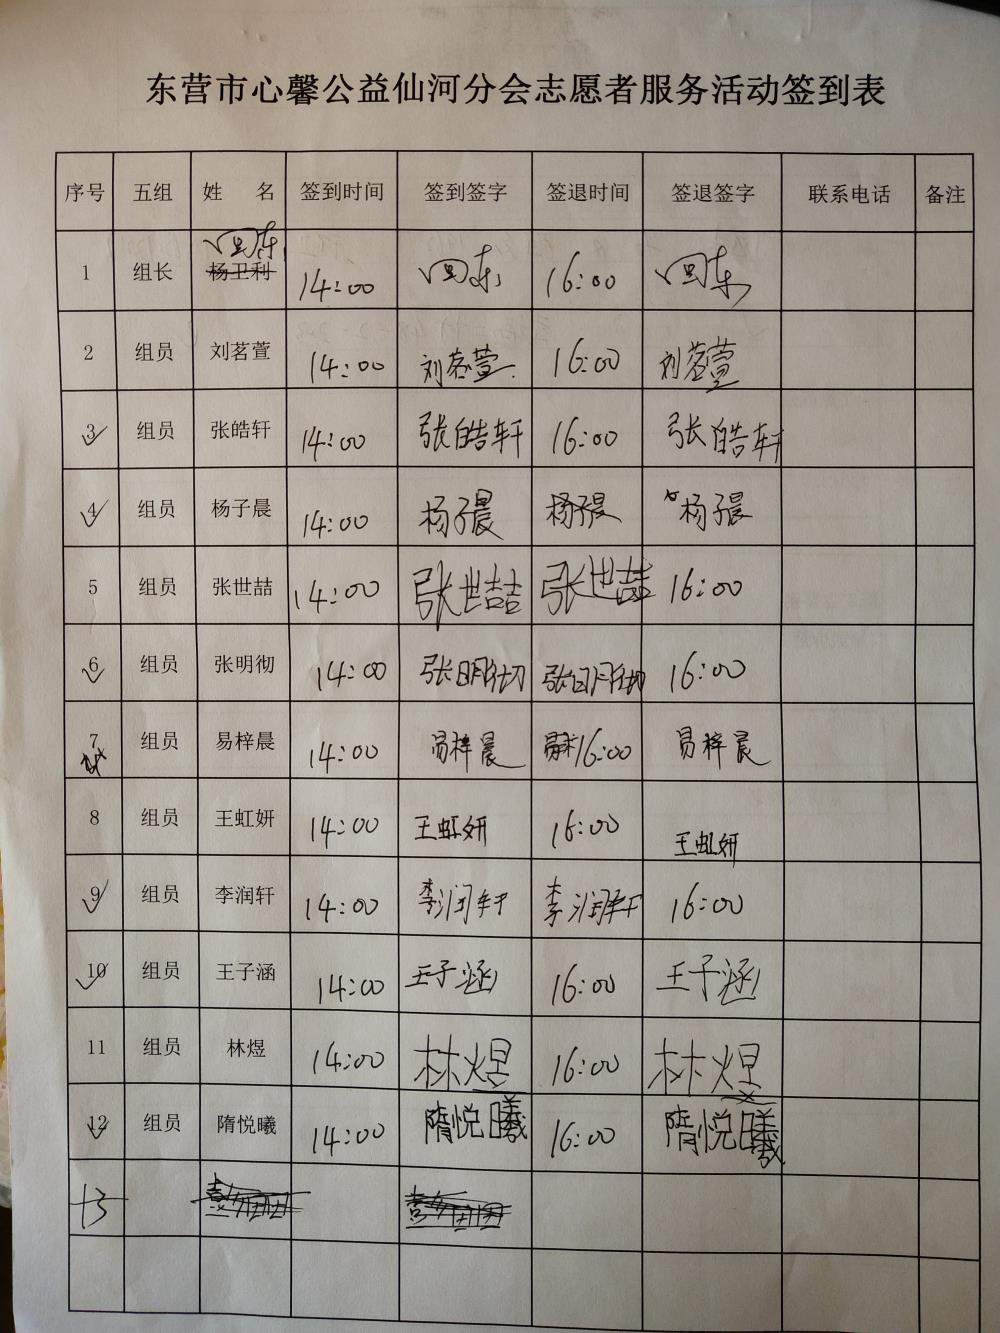 东营市心馨公益仙河分会志愿者服务活动签到表
序号 五组 姓 名 签到时间 签到签字 签退时间 签退签字 联系电话 备注
1 组长 杨卫利 14:00 16:00
2 组员 刘茗萱 14:00 刘茗萱 16:00 刘茗萱
3 组员 张皓轩 14:00 张皓轩 16:00 张皓轩
4 组员 杨子晨 14:00 杨子晨 杨子晨 杨子晨
5 组员 张世喆 14:00 张世喆 张世喆 16:00
6 组员 张明彻 14:00 张明彻 张明彻 16:00
7 组员 易梓晨 14:00 易梓晨 16:00 易梓晨
8 组员 王虹妍 14:00 王虹妍 16:00 王虹妍
9 组员 李润轩 14:00 李润轩 李润轩 16:00
10 组员 王子涵 14:00 王子涵 16:00 王子涵
11 组员 林煜 14:00 林煜 16:00 林煜
12 组员 隋悦曦 14:00 隋悦曦 16:00 隋悦曦